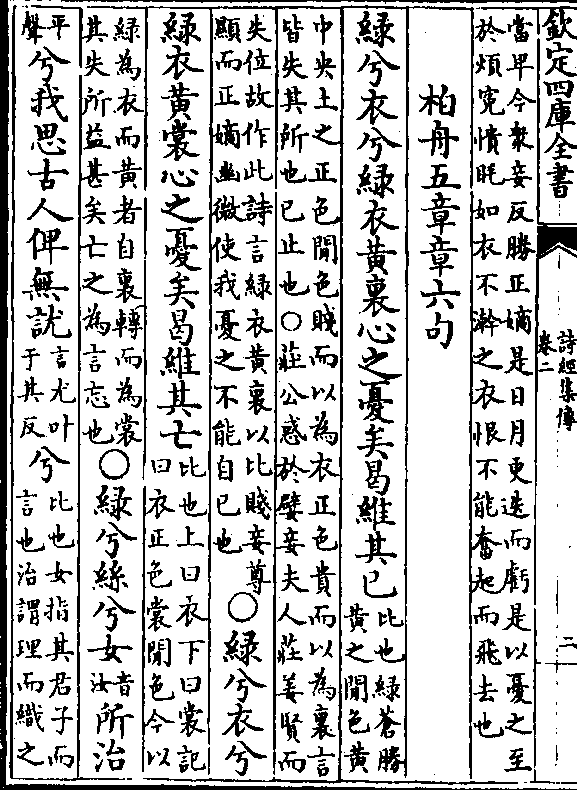 欽定四庫全書
詩經集傳
卷二
二
當卑今衆妾反勝正嫡是日月更迭而虧是以憂之至
於煩寃憒眊如衣不澣之衣恨不能奮起而飛去也
柏舟五章章六句
緑兮衣兮緑衣黄裏心之憂矣曷維其已比也緑蒼勝黄之閒色黄
中央土之正色閒色賤而以為衣正色貴而以為裏言
皆失其所也已止也○莊公惑於嬖妾夫人莊姜賢而
失位故作此詩言緑衣黄裏以比賤妾尊
顯而正嫡幽微使我憂之不能自已也○緑兮衣兮
緑衣黄裳心之憂矣曷維其亡比也上曰衣下曰裳記曰衣正色裳閒色今以
緑為衣而黄者自裏轉而為裳
其失所益甚矣亡之為言忘也○緑兮絲兮女音汝所治
平聲兮我思古人俾無訧言尤叶于其反兮比也女指其君子而言也治謂理而織之